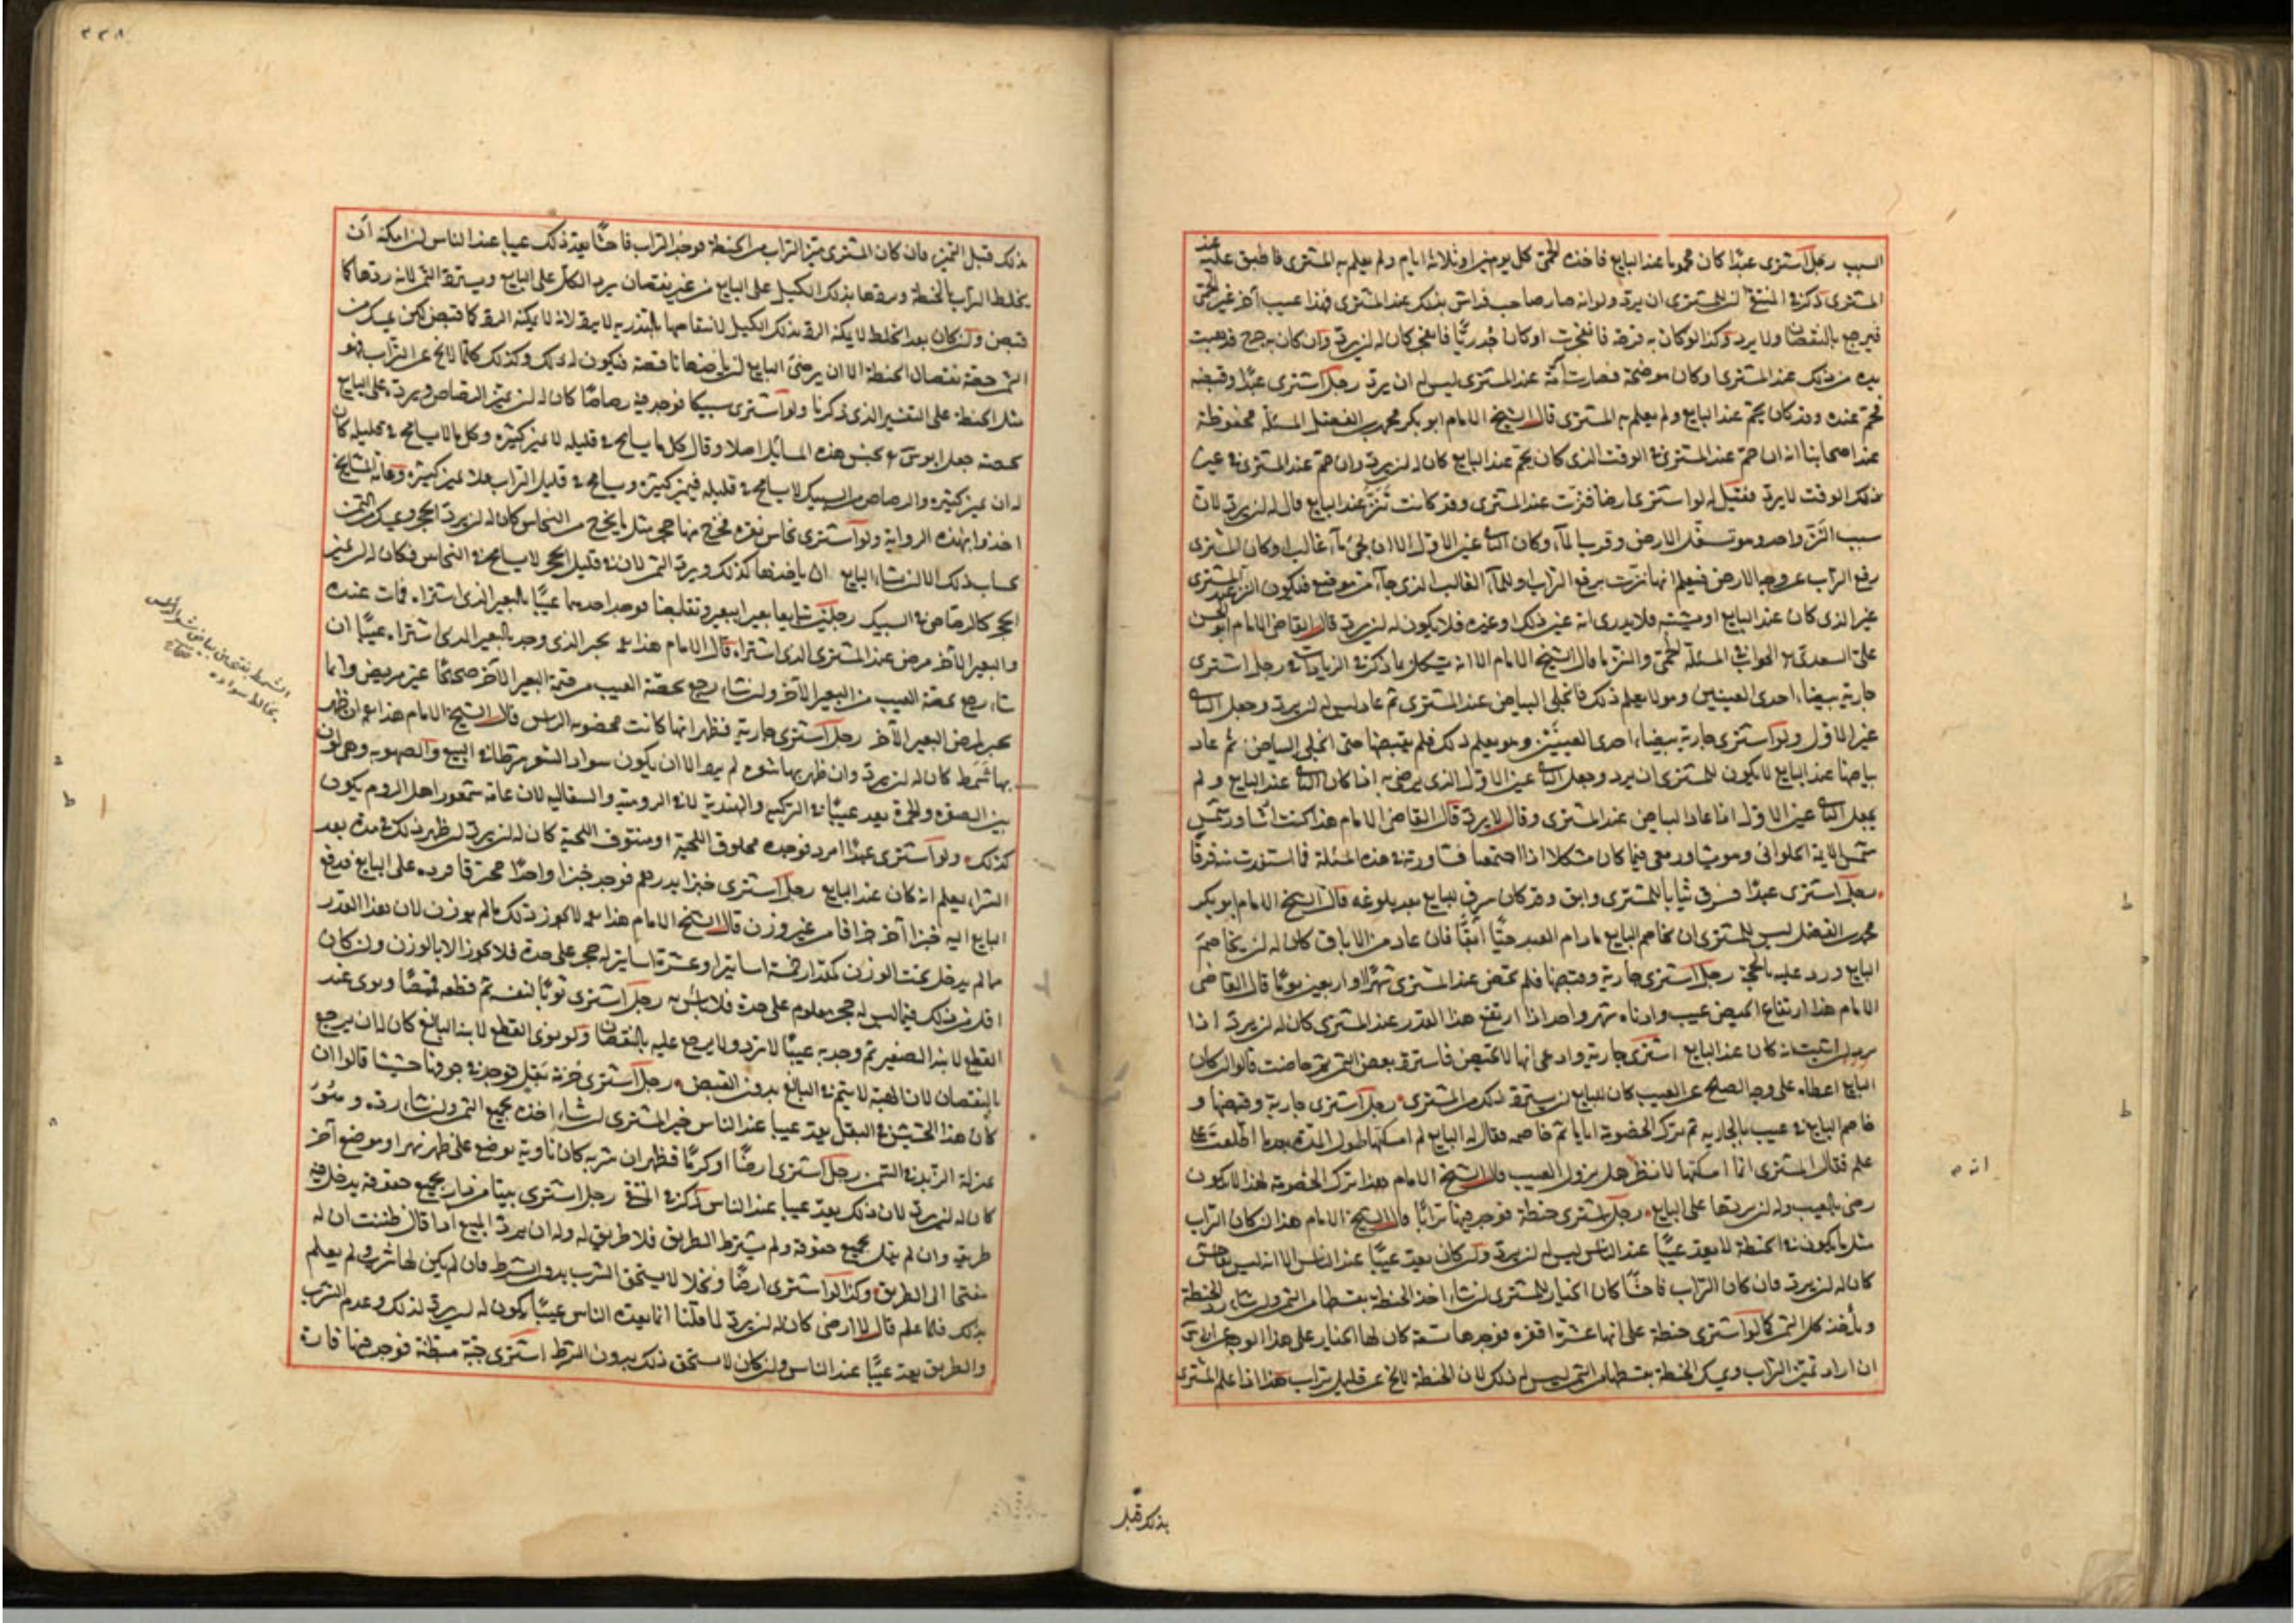 السبب رجل اشترى عبدا كان محموما عند البايع فاخذه الحمى كل يومين او ثلاثة ايام ولم يعلم به المشترى فاطبق عليه عند
المشترى ذكر فى المنتقى ان للمشترى ان يرد ولو انه صار صاحب فراش بذلك عند المشترى فهذا عيب آخر غير الحمى
فيرجع بالنقصان ولا يرد وكذا لو كان به قرحة فانفجرت او كان جدريا فانفجر كان له ان يرد وان كان به جرح فذهبت
يده من ذلك عند المشترى او كان موضحة فصارت آمة عند المشترى ليس له ان يرد رجل اشترى عبدا وقبضه
فحم عنده وقد كان يحم عند البايع ولم يعلم به المشترى قال الشيخ الامام ابو بكر محمد بن الفضل المسئلة محفوظة
عند اصحابنا انه ان حم عند المشترى فى الوقت الذى كان يحم عند البايع كان له ان يرد وان حم عند المشترى فى غير
ذلك الوقت لا يرد فقيل له لو اشترى ارضا فنزت عند المشترى وقد كانت تنز عند البايع قال له ان يرد لان
سبب النز واحد وهو تسفل الارض وقرب الماء وكان الثانى عين الاول الا ان يجئ ماء غالب او كان المشترى
رفع التراب عن وجه الارض فيعلم انها نزت برفع التراب او للماء الغالب الذى جاء من موضع فيكون النز عند المشترى
غير الذى كان عند البايع او يشتبه فلا يدرى انه عين ذلك او غيره فلا يكون له ان يرد قال القاضى الامام ابو الحسن
على السعدى الجواب فى المسئلة الحمى والنز ما قال الشيخ الامام الا انه يشكل ما ذكر فى الزيادات فى رجل اشترى
جارية بيضاء احدى العينين وهو لا يعلم ذلك فانجلى البياض عند المشترى ثم عاد ليس له ان يرد وجعل الثانى
غير الاول ولو اشترى جارية بيضاء احدى العينين وهو يعلم ذلك فلم يقبضها حتى انجلى البياض ثم عاد
بياضها عند البايع لا يكون للمشترى ان يرد وجعل الثانى عين الاول الذى يرضى به اذا كان الثانى عند البايع ولم
يجعل الثانى عين الاول اذا عاد البياض عند المشترى وقال لا يرد قال القاضى الامام هذا كنت اشاور شمس
شمس الايمة الحلوانى وهو يشاور معى فيما كان مشكلا اذا اجتمعنا فشاورته فى هذه المسئلة فما استفدت منه فرقا
رجل اشترى عبدا فسرق ثيابا للمشترى وابق وقد كان سرق للبايع بعد بلوغه قال الشيخ الامام ابو بكر
محمد بن الفضل ليس للمشترى ان يخاصم البايع ما دام العبد حيا آبقا فان عاد من الاباق كان له ان يخاصم
البايع ورد عليه بالحجة رجل اشترى جارية وقبضها فلم تحض عند المشترى شهرا او اربعين يوما قال القاضى
الامام هذا ارتفاع الحيض عيب وادناه شهر واحد اذا ارتفع هذا القدر عند المشترى كان له ان يرد اذا
اثبت انه كان عند البايع اشترى جارية وادعى انها لا تحيض فاسترد بعض الثمن ثم حاضت قالوا ان كان
البايع اعطاه على وجه الصلح عن العيب كان للبايع ان يسترد ذلك من المشترى رجل اشترى جارية وقبضها و
خاصم البايع فى عيب بالجارية ثم ترك الخصومة اياما ثم خاصمه فقال له البايع لم امسكتها طول المدة بعد ما اطلعت على
علم فقال المشترى انما امسكتها لانظر هل يزول العيب قال الشيخ الامام هذا ترك الخصومة لهذا لا يكون
رضى بالعيب وله ان يردها على البايع رجل اشترى حنطة فوجد فيها ترابا قال الشيخ الامام هذا ان كان التراب
مثل ما يكون فى الحنطة لا يعد عيبا عند الناس ليس له ان يرد وان كان يعد عيبا عند الناس الا انه ليس بفاحش
كان له ان يرد فان كان التراب فاحشا كان الخيار للمشترى ان شاء اخذ الحنطة بقسطها من الثمن وان شاء رد الحنطة
ويأخذ كل الثمن كما لو اشترى حنطة على انها عشرة اقفزة فوجدها تسعة كان لها الخيار على هذا الوجه
ان اراد تميز التراب ويمسك الحنطة بقسطها من الثمن ليس له ذلك لان الحنطة لا تخلو عن قليل تراب هذا اذا علم المشترى
بذلك قبل
٢٢٨
بذلك قبل التميز فان كان المشترى ميز التراب من الحنطة فوجد التراب فاحشا يعد ذلك عيبا عند الناس ان امكنه ان
يخلط التراب بالحنطة وردها بذلك الكيل على البايع من غير نقصان يرد الكل على البايع ويسترد الثمن لانه ردها كما
قبض وان كان بعد الخلط لا يمكنه الرد بذلك الكيل لانتقاصها بالتذرية لا يرد لانه لا يمكنه الرد كما قبض لكن يمسك من
الثمن حصة نقصان الحنطة الا ان يرضى البايع ان ياخذها ناقصة فيكون له ذلك وكذلك كلما لا يخلو عن التراب فهو
مثل الحنطة على التفسير الذى ذكرنا ولو اشترى سبيكا فوجد فيه رصاصا كان له ان يميز الرصاص ويرد على البايع
بحصته جعل ابو يوسف لجنس هذه المسايل اصلا وقال كل ما يسامح فى قليله لا يميز كثيره وكل ما لا يسامح فى قليله كان
له ان يميز كثيره والرصاص من السبيك لا يسامح فى قليله فيميز كثيره ويسامح فى قليل التراب فلا يميز كثيره وعامة المشايخ
اخذوا بهذه الرواية ولو اشترى نحاس نقرة فخرج منها حجر مثل ما يخرج من النحاس كان له ان يرد الحجر ويمسك من الثمن
بحساب ذلك الا ان شاء البايع ان ياخذها كذلك ويرد الثمن لان قليل الحجر لا يسامح فى النحاس فكان له ان يميز
الحجر كالرصاص فى السبيك رجلين تبايعا بعيرا ببعير وتقابضا فوجد احدهما عيبا بالبعير الذى اشتراه فمات عنده
والبعير الآخر مرض عند المشترى الذى اشتراه قال الامام هذا يخير الذى وجد بالبعير الذى اشتراه عيبا ان
شاء رجع بحصة العيب من البعير الآخر وان شاء رجع بحصة العيب من قيمة البعير الآخر صحيحا غير مريض وانما
يخير لمرض البعير الآخر رجل اشترى جارية فظهر انها كانت مخضوبة الراس قال الشيخ الامام هذا ان ظهر
بها شمط كان له ان يرد وان ظهر بها شوه لم يرد الا ان يكون سواد الشعر شرطا فى البيع والصهوبة وهى لون
بين الصفرة والحمرة يعد عيبا فى التركية والهندية لا فى الرومية والسقالبة لان عامة شعور اهل الروم يكون
كذلك ولو اشترى عبدا امرد فوجده محلوق اللحية او منتوف اللحية كان له ان يرد ان ظهر ذلك فى مدة بعد
الشراء يعلم انه كان عند البايع رجل اشترى خبزا بدرهم فوجد خبزا واحدا محترقا فرده على البايع فدفع
البايع اليه خبزا آخر جزافا من غير وزن قال الشيخ الامام هذا لا يجوز ذلك ما لم يوزن لان هذا القدر
مما لم يدخل تحت الوزن كمقدار خمسة اساتير او عشرة اساتير له حجر على حدة فلا يجوز الا بالوزن وان كان
اقل من ذلك فيما ليس له حجر معلوم على حدة فلا باس به رجل اشترى ثوبا لنفسه ثم قطعه قميصا ونوى عند
القطع لابنه الصغير ثم وجد به عيبا لا يرد ولا يرجع عليه بالنقصان ولو نوى القطع لابنه البالغ كان له ان يرجع
بالنقصان لان الهبة لا يتم فى البالغ بدون القبض رجل اشترى حزمة بقل فوجد فى جوفها حشيشا قالوا ان
كان هذا الحشيش فى البقل يعد عيبا عند الناس خير المشترى ان شاء اخذه بجميع الثمن وان شاء رده وهو
بمنزلة الزبد فى السمن رجل اشترى ارضا او كرما فظهر ان شربه كان ناوية يوضع على ظهر نهر او موضع آخر
كان له ان يرد لان ذلك يعد عيبا عند الناس ذكره فى المنتقى رجل اشترى بيتا من دار بجميع حقوقه يدخل فيه
طريقه وان لم يقل بجميع حقوقه ولم يشترط الطريق فلا طريق له وله ان يرد المبيع اذا قال ظننت ان له
مفتحا الى الطريق وكذا لو اشترى ارضا ونخلا لا يستحق الشرب بدون الشرط فان لم يكن لها شرب ولم يعلم
بذلك فلما علم قال لا ارضى كان له ان يرد لما قلنا انما يعده الناس عيبا يكون له ان يرد لذلك وعدم الشرب
والطريق يعد عيبا عند الناس وان كان لا يستحق ذلك بدون الشرط اشترى جبة مبطنة فوجد فيها فارة
الشمط بفتحتين بياض شعر الراس
يخالط سواده
صحاح